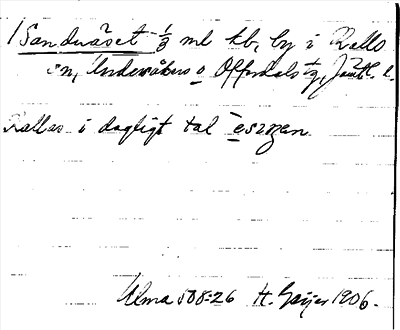 1 Sandviäset 1/3 ml kb, by i Kalls
sn, Undersåkers o Offerdals tg, Jämtl. l.
Kallas i dagligt tal
Ulma 508:26 H. Geijer 1906.